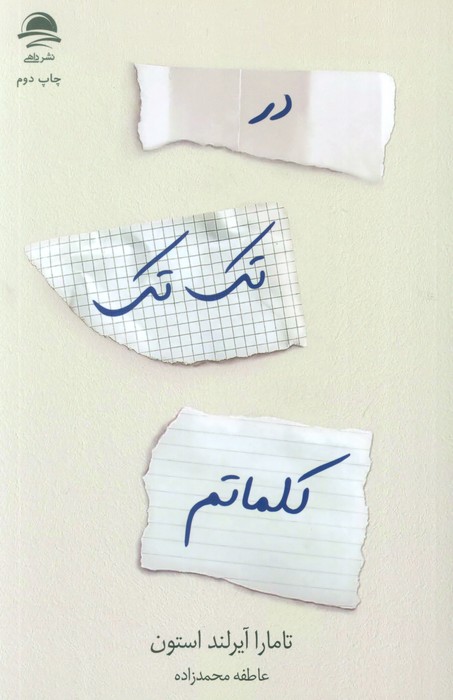 نشر داهی
چاپ دوم
در
تک تک
کلماتم
تامارا آیرلند استون
عاطفه محمدزاده